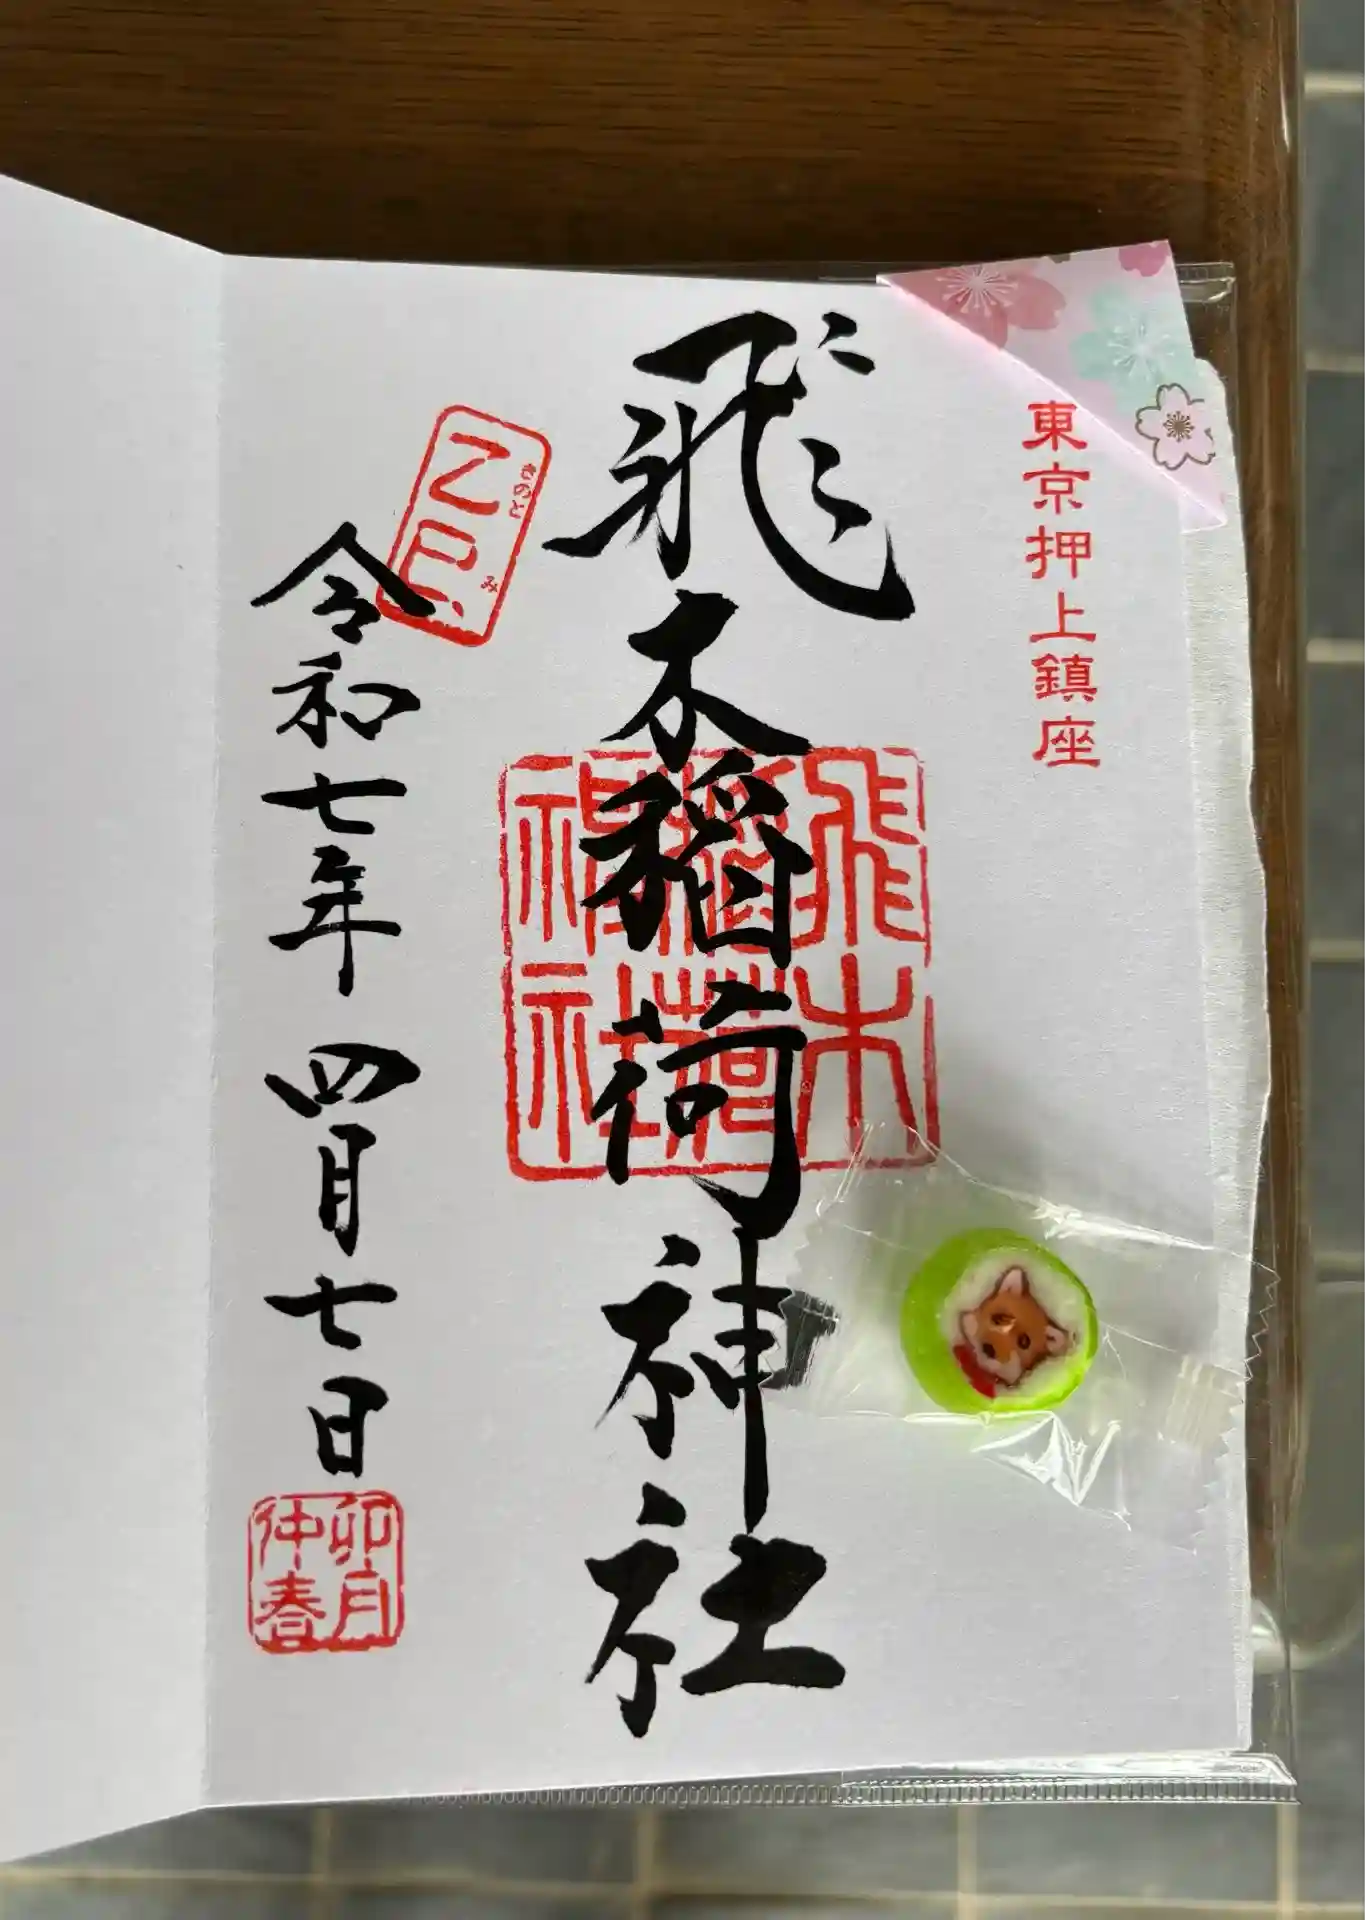 東京押上鎮座
飛木稲荷神社
飛木
稲荷
神社
乙巳
きのと
み
令和七年 四月七日
卯月
仲春